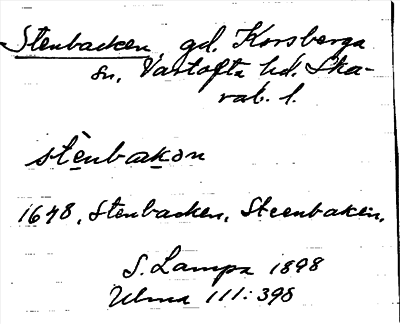 Stenbacken, gd. Korsberga
sn, Vartofta hd. Ska-
rab. l.
stènbakən
1648, Stenbacken, Steenbaken,
S. Lampa 1898
Ulma 111:398